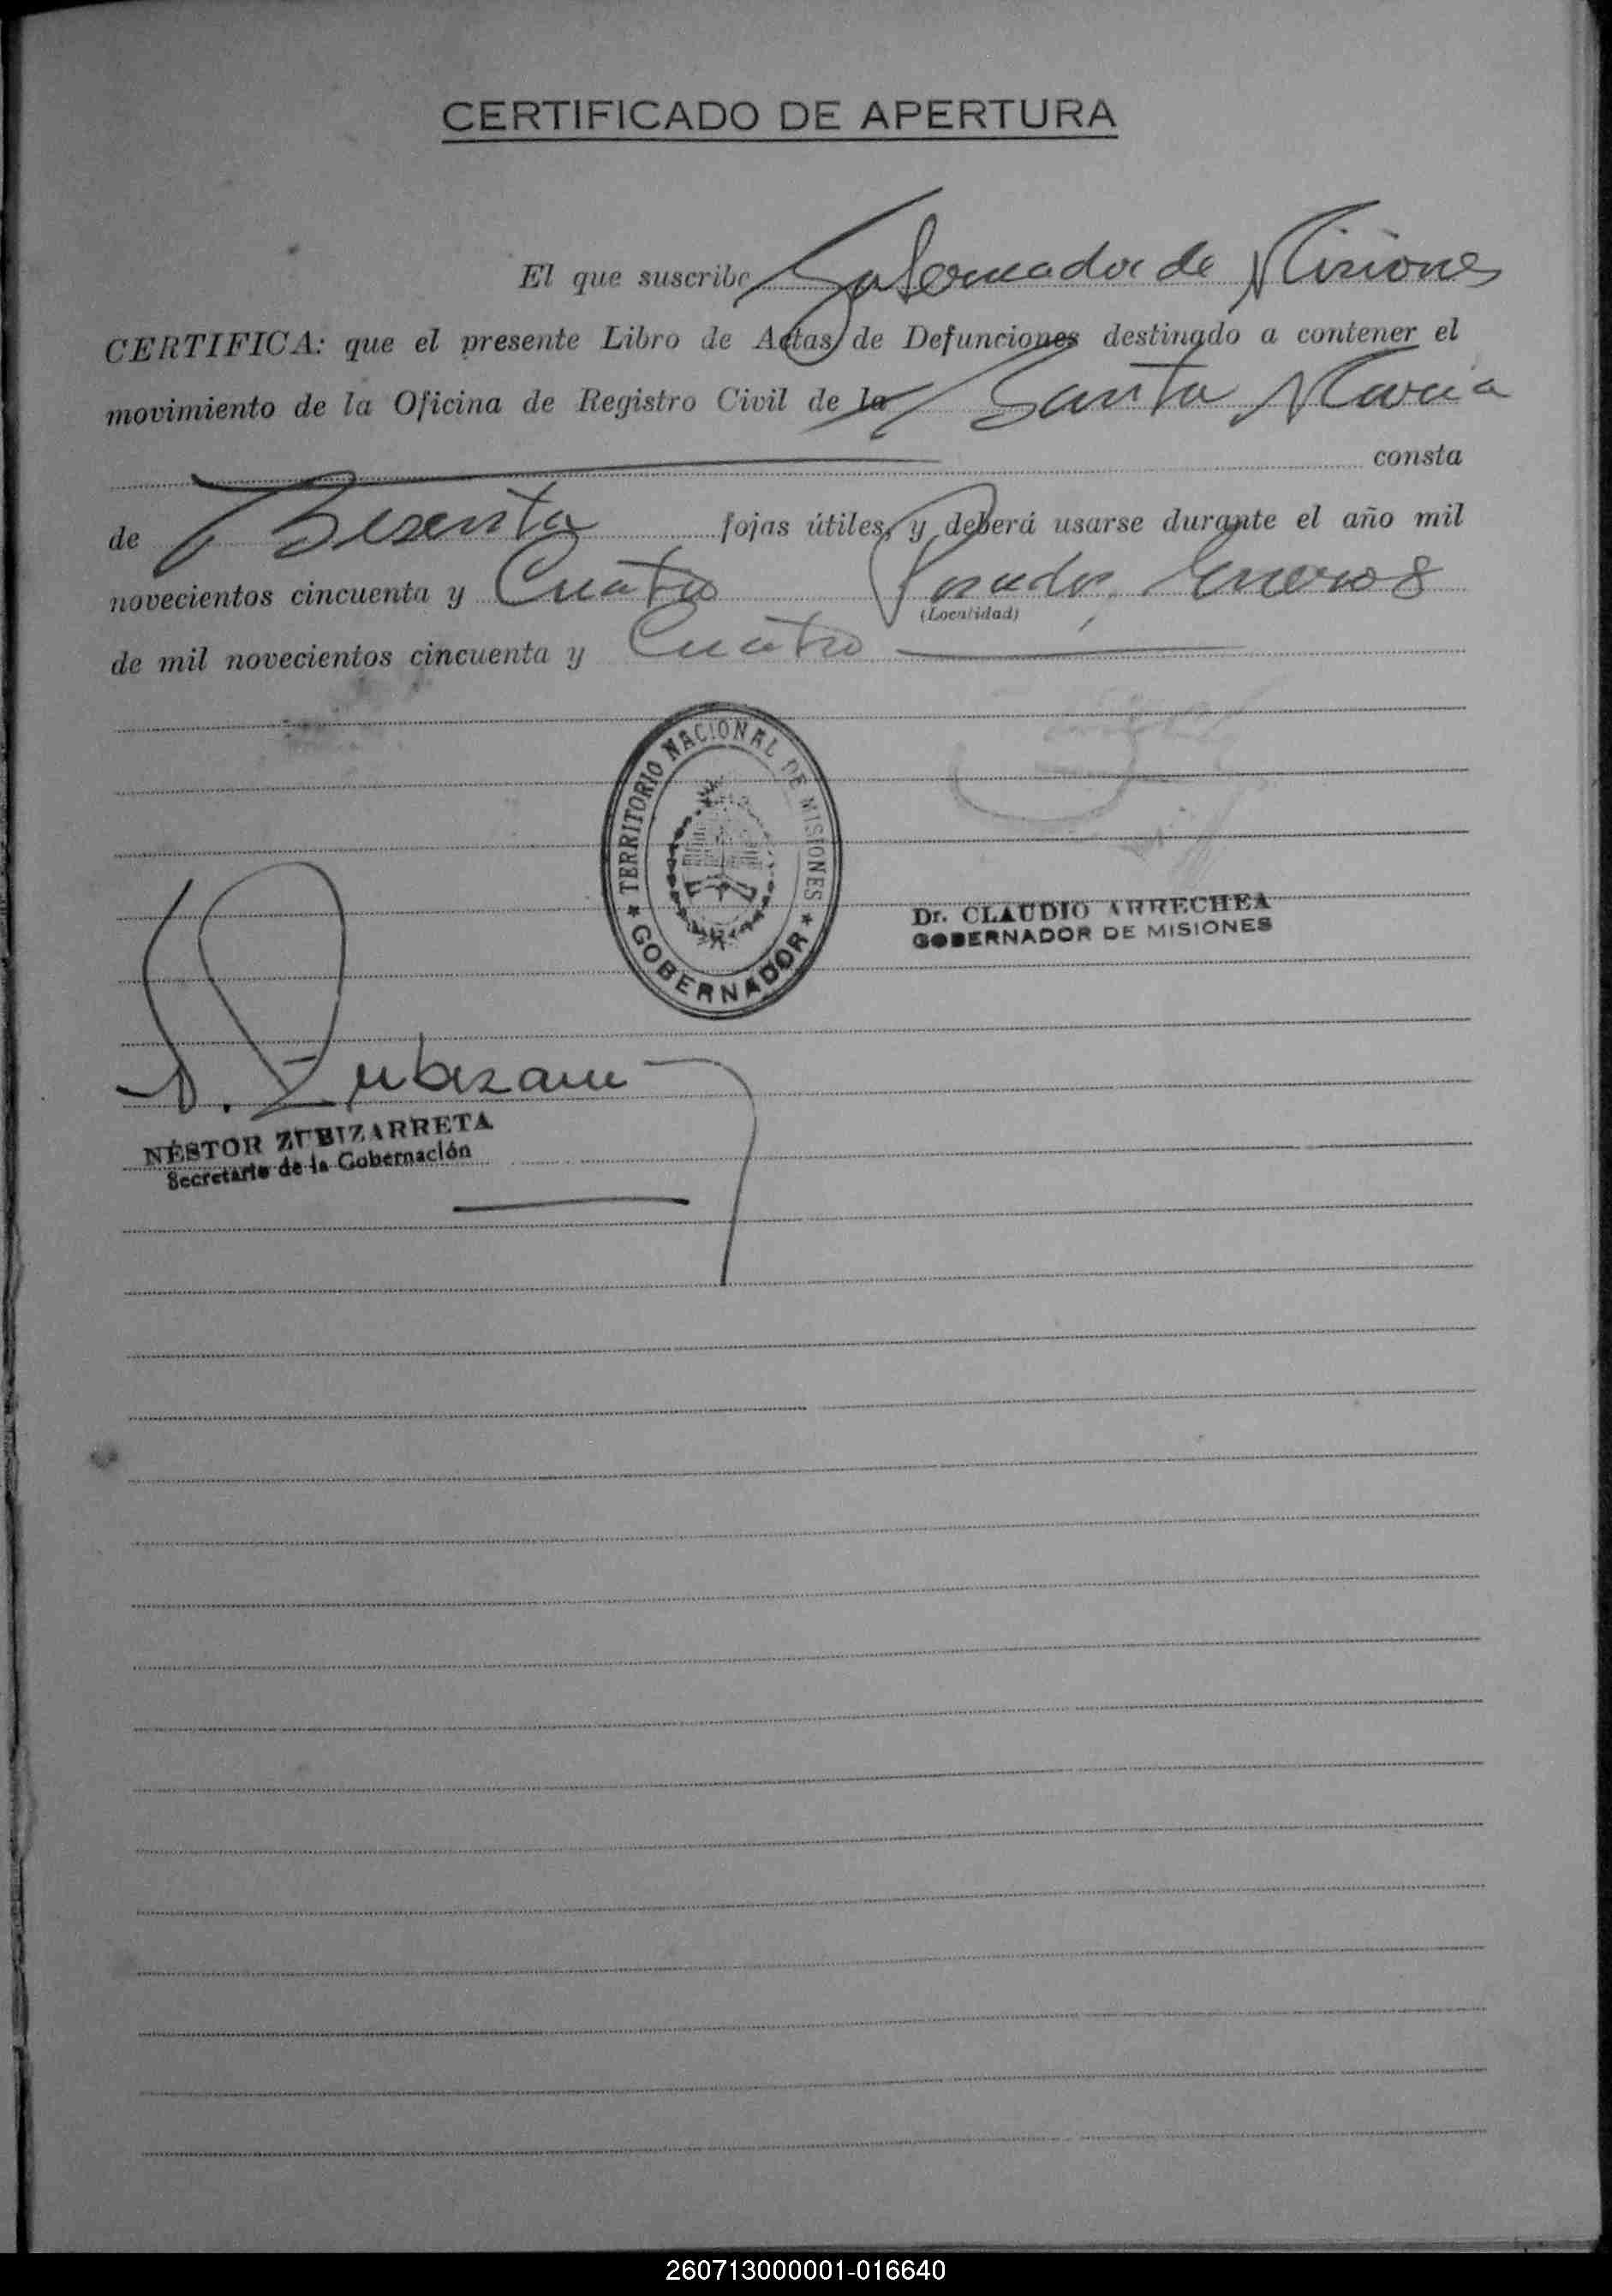 CERTIFICADO DE APERTURA
El que suscribe Gobernador de Misiones
CERTIFICA: que el presente Libro de Actas de Defunciones destinado a contener el
movimiento de la Oficina de Registro Civil de la Santa María
consta
de fojas útiles, y deberá usarse durante el año mil
novecientos cincuenta y Cuatro Posadas, Enero 8
(Localidad)
de mil novecientos cincuenta y Cuatro
TERRITORIO NACIONAL DE MISIONES
GOBERNADOR
Dr. CLAUDIO ARRECHEA
GOBERNADOR DE MISIONES
NÉSTOR ZUBIZARRETA
Secretario de la Gobernación
260713000001-016640